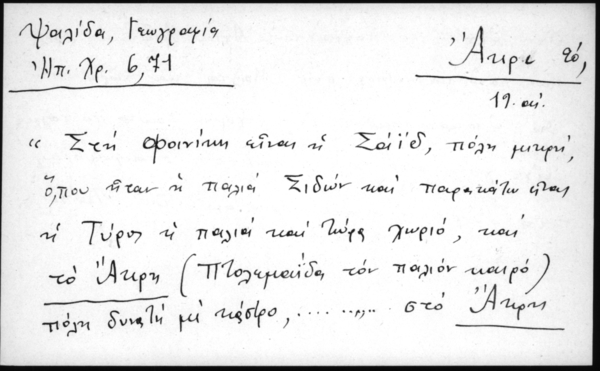 Ψαλίδα, Γεωγραφία
Ἠπ. Χρ. 6, 71
Ἄκρε τό,
19. αἰ.
“ Στή Φοινίκη εἶναι ἡ Σάϊδ, πόλη μικρή,
ὅ,που ἦταν ἡ παλιά Σιδών καί παρακάτω εἶναι
ἡ Τύρος ἡ παλιά καί τώρα χωριό, καί
τό Ἄκρη (Πτολεμαΐδα τόν παλιόν καιρό)
πόλη δυνατή μέ κάστρο, ......... στό Ἄκρη